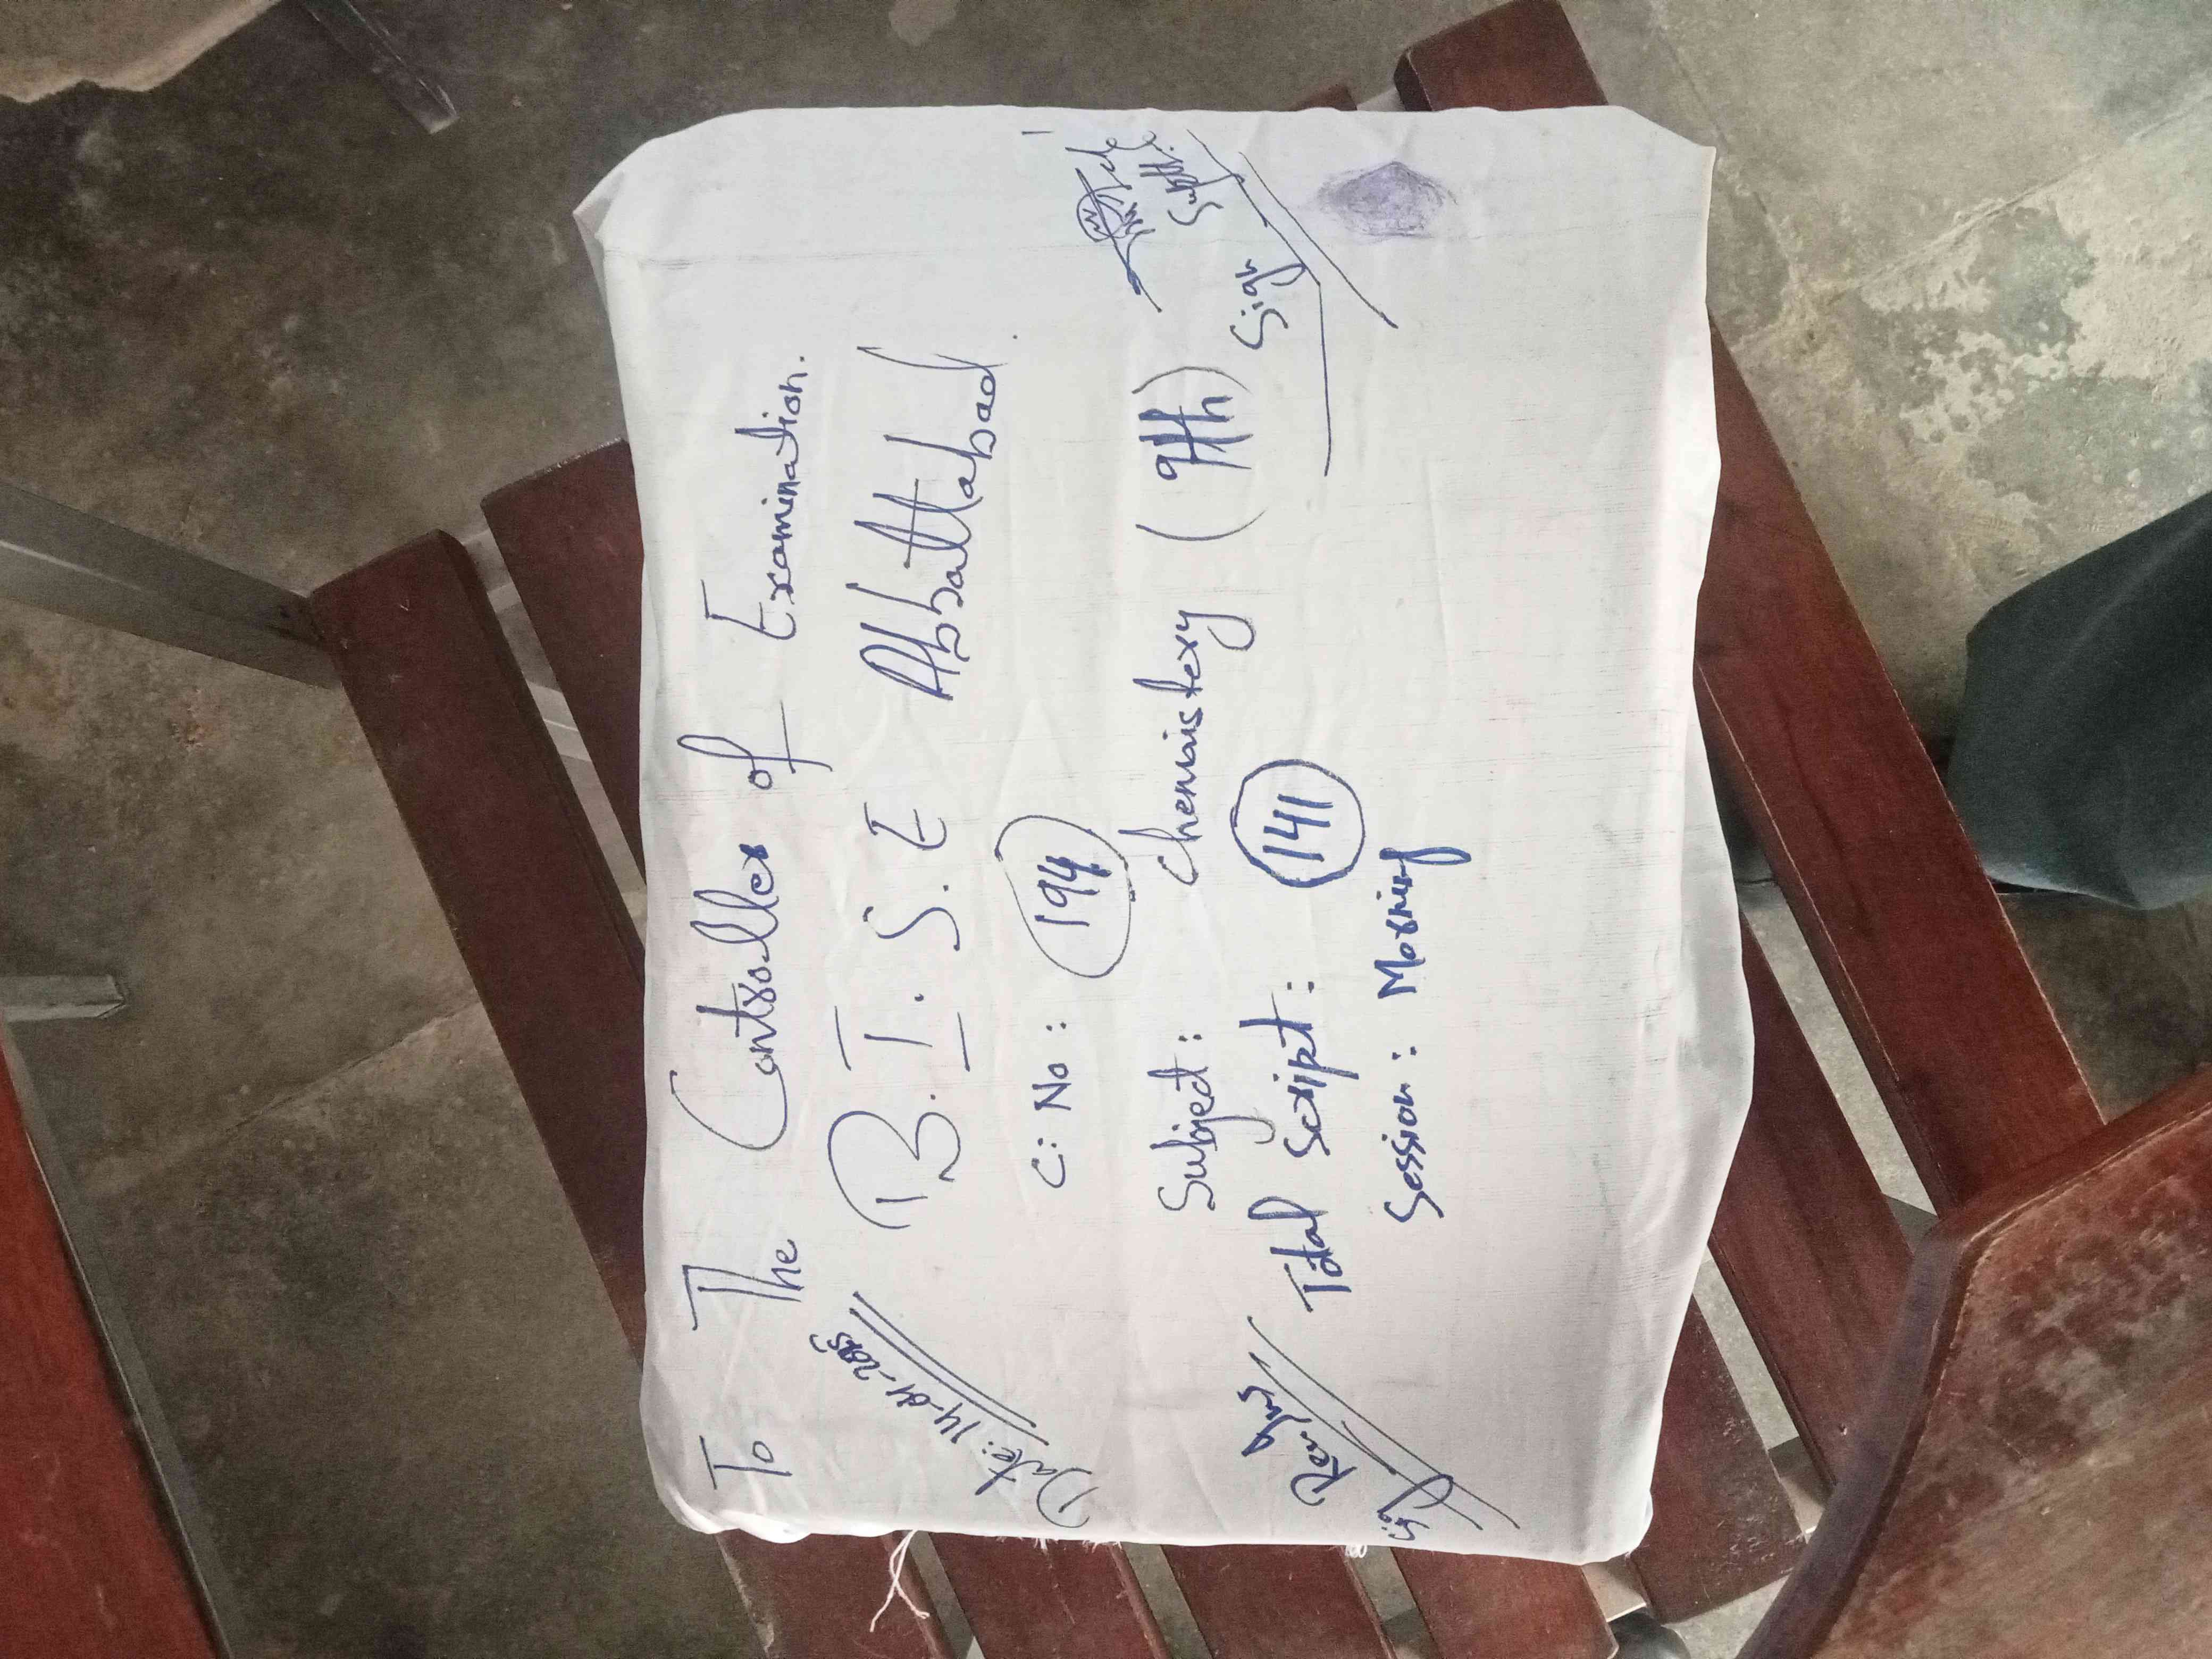 To The Controller of Examination.
B.I.S.E Abbattabad.
Date: 14-04-2025
C: No: 194
Subject: Chemistery (9th)
Total Script: 141
Session: Morning
Sign
Supdt:
Sign